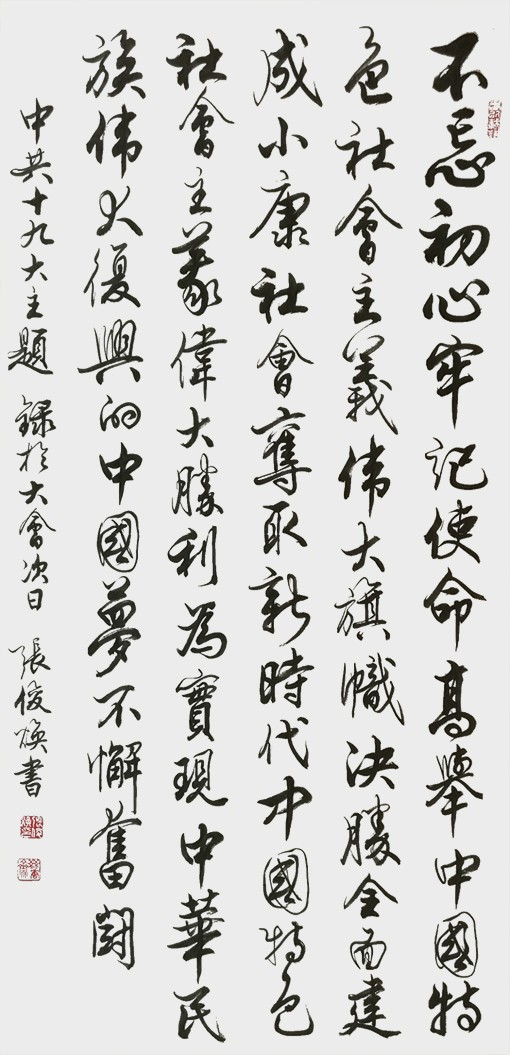 不忘初心牢記使命高舉中國特
色社會主義伟大旗幟決勝全面建
成小康社會奪取新時代中國特色
社會主義偉大勝利為實現中華民
族伟大復興的中國夢不懈奮闘
中共十九大主題 錄於大會次日 張俊煥書